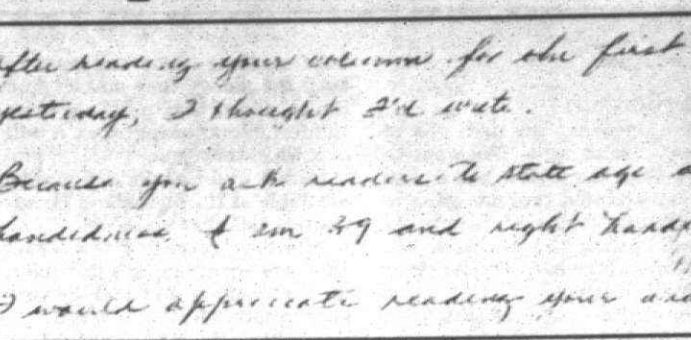 after reading your column for the first
yesterday, I thought I'd write.
Because you ask readers to state age
handedness. I am 39 and right hande
I would appreciate reading your